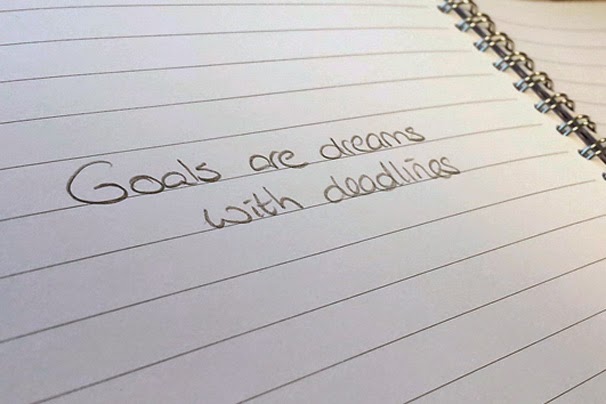 Goals are dreams
with deadlines